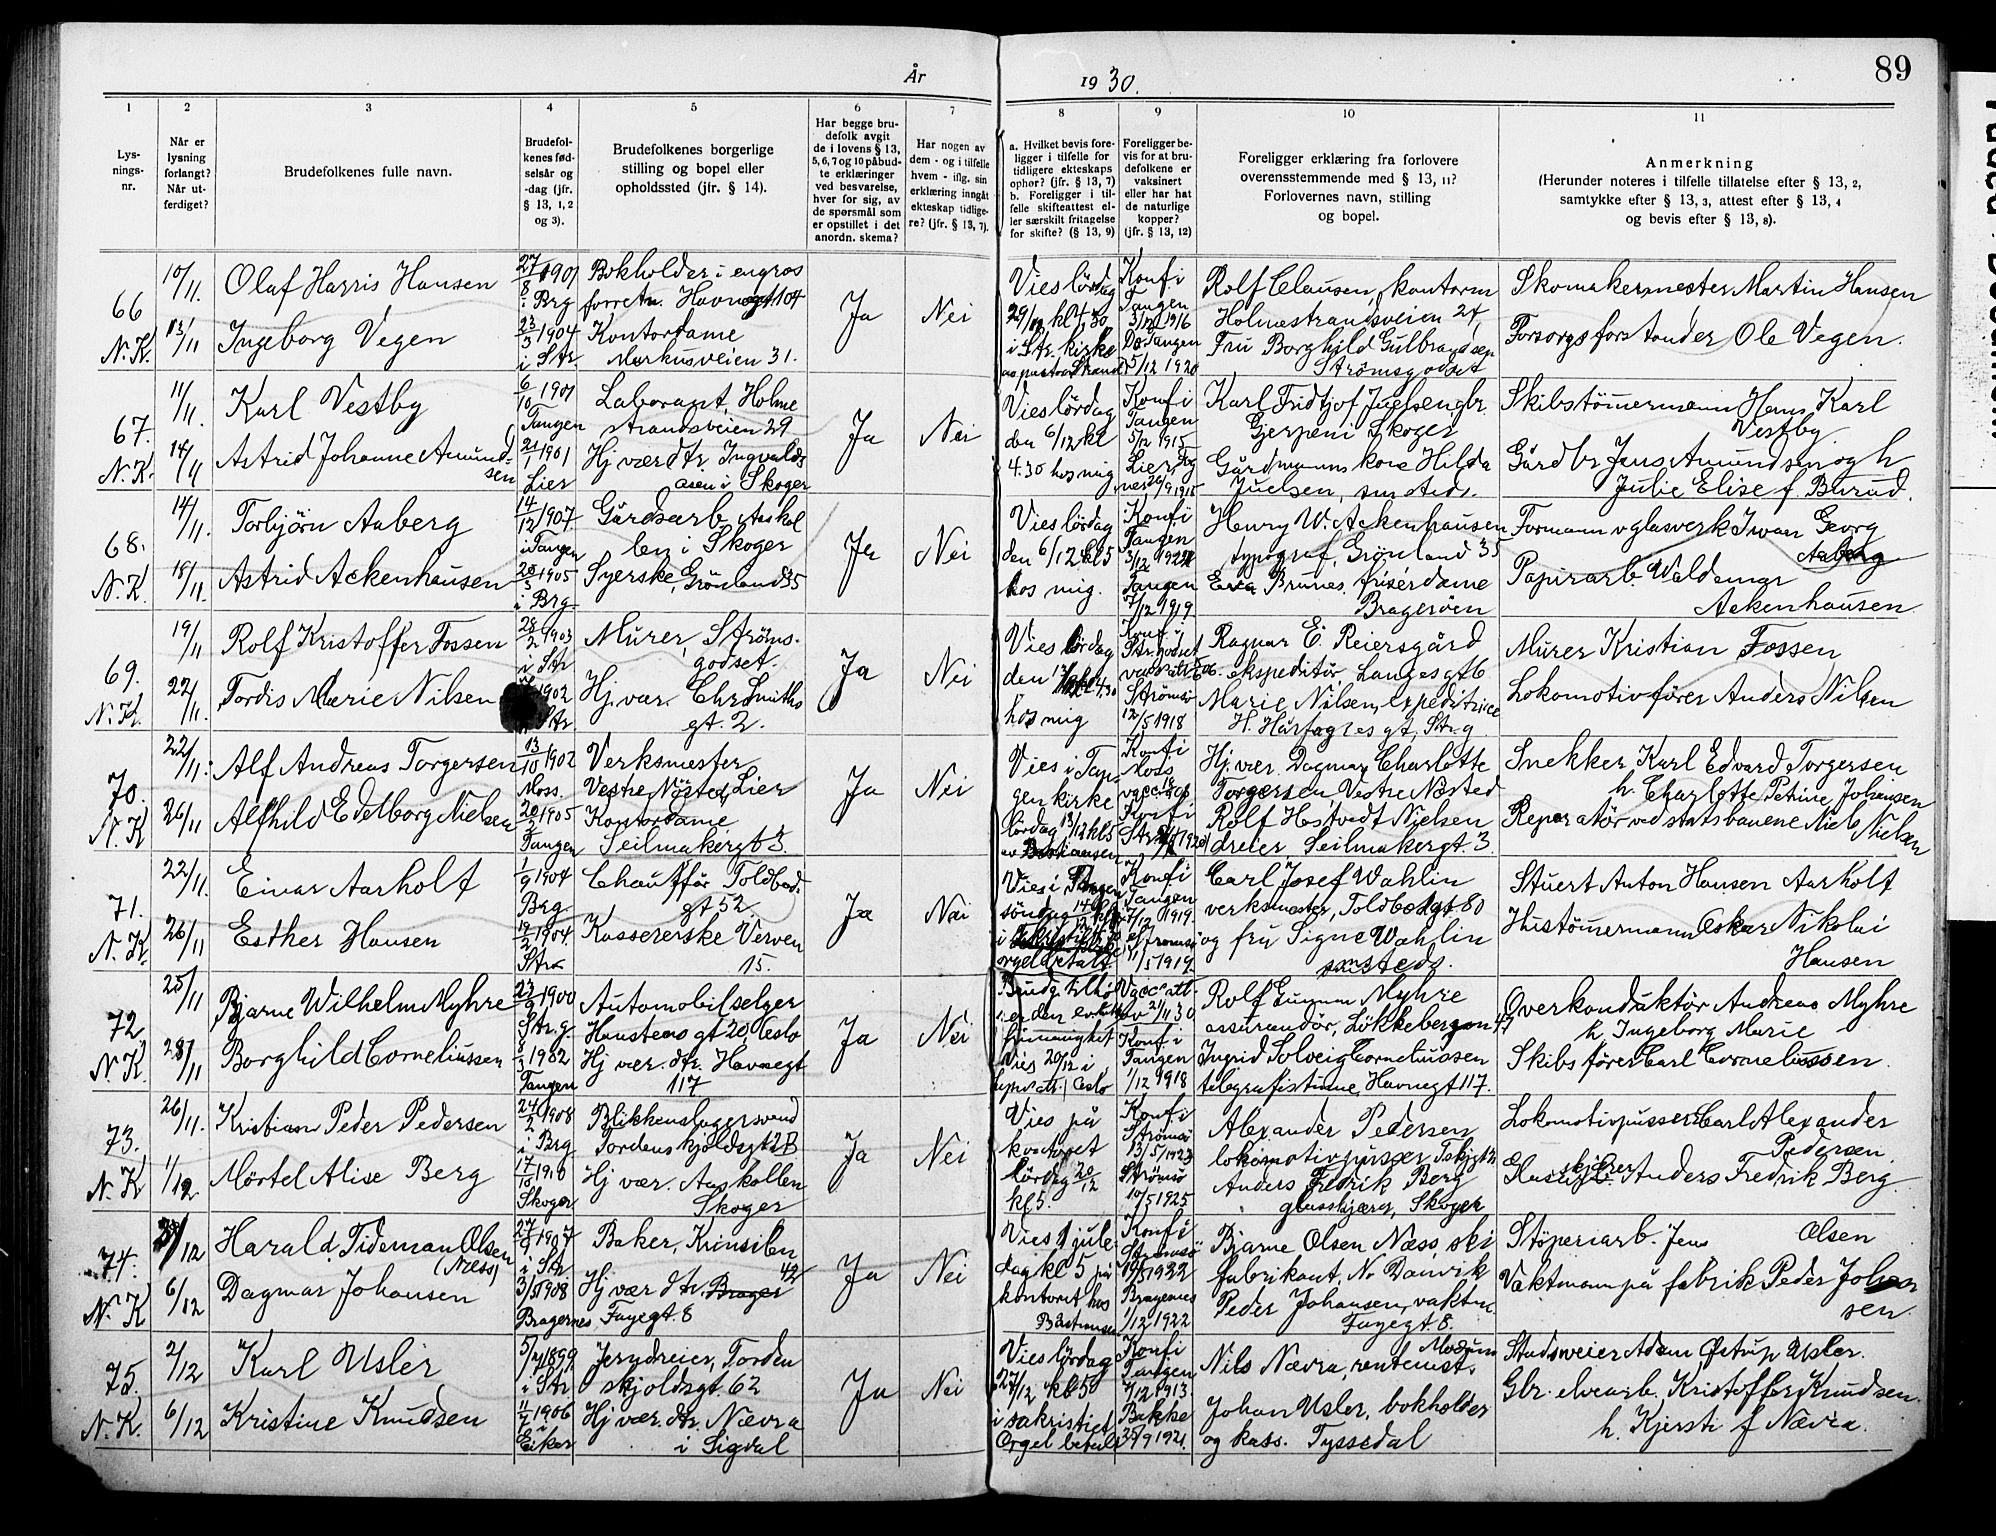 År
1930.
89
1
2
3
4
5
6
7
8
9
10
11
Lys-
nings-
nr.
Når er
lysning
forlangt?
Når ut-
ferdiget?
Brudefolkenes fulle navn.
Brudefol-
kenes fød-
selsår og
-dag (jfr.
§ 13, 1, 2
og 3).
Brudefolkenes borgerlige
stilling og bopel eller
opholdssted (jfr. § 14).
Har begge bru-
defolk avgit
de i lovens § 13,
5, 6, 7 og 10 påbud-
te erklæringer
ved besvarelse,
hver for sig, av
de spørsmål som
er opstillet i det
anordn. skema?
Har nogen av
dem - og i tilfelle
hvem - iflg. sin
erklæring inngåt
ekteskap tidlige-
re? (jfr. § 13, 7).
a. Hvilket bevis fore-
ligger i tilfelle for
tidligere ekteskaps
ophør? (jfr. § 13, 7)
b. Foreligger i til-
felle skifteattest el-
ler særskilt fritagelse
for skifte? (§ 13, 9)
Foreligger be-
vis for at bru-
defolkene er
vaksinert
eller har hat
de naturlige
kopper?
(jfr. § 13, 12)
Foreligger erklæring fra forlovere
overensstemmende med § 13, 11?
Forlovernes navn, stilling
og bopel.
Anmerkning
(Herunder noteres i tilfelle tillatelse efter § 13, 2,
samtykke efter § 13, 3, attest efter § 13, 4
og bevis efter § 13, 8).
66
N. K.
10/11.
13/11
Olaf Harris Hansen
Ingeborg Vegen
27/8 1901
i Brg
23/3 1904
i Str.
Bokholder i engros
forretn. Havnegt. 104
Kontordame
Markusveien 31.
Ja
Nei
Vies lördag
29/11 kl 4.30
i Str. kirke
av pastor Strand
Konfi
Tangen
3/12 1916
Do Tangen
5/12 1920
Rolf Clausen, kontorm
Holmestrandsveien 24,
Fru Borghild Gulbrandsen
Strömsgodset
Skomakermester Martin Hansen
Forsorgsforstander Ole Vegen.
67.
N. K.
11/11.
14/11
Karl Vestby
Astrid Johanne Amund-
sen
6/10 1901
Tangen
21/1 1901
Lier
Laborant, Holme
strandsveien 29
Hj vær dtr Ingvalds
åsen i Skoger
Ja
Nei
Vies lördag
den 6/12 kl
4.30 hos mig
Konfi
Tangen
5/12 1915
Karl Fridtjof Juelsen gbr.
Gjerpen i Skoger
Gårdmanns kone Hilda
Juelsen, smsteds.
Skibstömmermann Hans Karl
Vestby.
Gårdbr Jens Amundsen og h
Julie Elise f Burud.
68.
N. K.
14/11.
18/11.
Torbjörn Aaberg
Astrid Ackenhausen
14/12 1907
i Tangen
1905
i Brg
Gårdsarb Aaskol
len i Skoger
Syerske, Grönland 35
Ja
Nei
Vies lördag
den 6/12 kl 5
hos mig.
Konfi
Tangen
3/12 1922
Tangen
7/12 1919
Henry W. Ackenhausen
typograf, Grönland 35
Brunes, frisérdame
Bragerøen
Formann v glasverk Iwan Georg
Aaberg
Papirarb Waldemar
Ackenhausen
69.
N. K.
19/11
22/11.
Rolf Kristoffer Fossen
Tordis Marie Nilsen
28/2 1903
i Str
1902
Str.
Murer, Ströms-
godset.
Hj. vær. Chr. Smiths
gt. 2.
Ja
Nei
Vies lördag
den
hos mig
Konfi
Str. godset
Strömsö
12/5 1918
Ragnar E. Reiersgård
ekspeditör, Langesgt 6
Marie Nilsen, expeditrice
H. Hårfagres gt, Str. g.
Murer Kristian Fossen
Lokomotivförer Anders Nilsen
70.
N. K
22/11.
26/11
Alf Andreas Torgersen
Alfhild Edelborg Nielsen
13/10 1902
Moss.
20/2 1905
Tangen
Verksmester
Vestre Nösted, Lier
Kontordame
Seilmakergt 3.
Ja
Nei
Vies i Tan-
gen kirke
lördag 13/12 kl 5
av Bastiansen
Konfi
Moss
Konfi
Hj. vær. Dagmar Charlotte
Torgersen Vestre Nösted
Rolf Hostvedt Nielsen
dreier Seilmakergt. 3.
Snekker Karl Edvard Torgersen
h. Charlotte Petrine Johansen
Reparatör ved statsbanene Niels Nielsen
71.
N. K.
22/11.
26/11
Einar Aarholt
Esther Hansen
1/9 1904
Brg
19/2 1904.
Str
Chaufför Toldbod-
gt 52
Kassererske Verven
15.
Ja
Nei
Vies i Tangen
söndag
orgel betalt
Konfi
Tangen
7/12 1919.
Strömsö
11/5 1919
Carl Josef Wahlin
verksmester, Toldbodgt 80
og fru Signe Wahlin
smsteds.
Stuert Anton Hansen Aarholt
Hustömmermann Oskar Nikolai
Hansen
72.
N. K.
25/11
28/11
Bjarne Wilhelm Myhre
Borghild Corneliussen
23/9 1900
Str. g.
8/3 1902
Tangen
Automobilselger
Hansteens gt 20, Oslo
Hj vær. dtr. Havnegt
117
Ja
Nei
Vies 20/12 i
Oslo
Vacc att.
av 21/11 30
Konfi
Tangen
1/12 1918
Rolf Gunnar Myhre
assurandör, Lökkebergan 47
Ingrid Solveig Corneliussen
telegrafistinne, Havnegt 117.
Overkonduktör Andreas Myhre
h. Ingeborg Marie
Skibsförer Carl Corneliussen.
73.
N. K
26/11.
1/12
Kristian Peder Pedersen
Mörtel Alise Berg
24/2 1908
i Brg
17/10 1910
Skoger
Blikkenslagersvend
Tordenskjoldsgt 2B
Hj vær. Aaskollen
Skoger
Ja
Nei
Vies på
kontoret
lördag 20/12
kl 5.
Konfi
Strömsö
13/5 1923
Strömsö
10/5 1925
Alexander Pedersen
lokomotivpusser
Anders Fredrik Berg
glasskjærer, Skoger
Lokomotivpusser Carl Alexander
Pedersen.
Anders Fredrik Berg
74.
N. K
6/12
Harald Tideman Olsen
(Næss)
Dagmar Johansen
27/9 1907
i Str
3/5 1908
Bragernes
Baker, Konsilen
42
Hj vær dtr. Brager
Fayegt. 8
Ja
Nei
Vies 1 jule
dag kl 5 på
kontoret hos
Bastiansen
Konfi
Strömsö
1922
Bragernes
1/12 1922
Bjarne Olsen Næss, ski
fabrikant, N. Danvik
Peder Johansen, vaktm.
Fayegt. 8.
Støperiarb. Jens Olsen
Vaktmann på fabrik Peder Johan
sen.
75.
N. K.
2/12
6/12
Karl Usler
Kristine Knudsen
1899
i Str.
11/7 1906
i
Eiker
Jerndreier, Torden
skjoldsgt. 62
Hj vær. dtr. Nævra
i Sigdal
Ja
Nei
Vies lördag
27/12 kl 5
i sakristiet
Orgel betalt
Konfi
Tangen
7/12 1913.
Bakke
25/9 1921.
Nils Nævra, rentenist. Modum
Johan Usler, bokholder
og kass. Tyssedal
Stadsveier Adam Østrup Usler.
Gbr. elvearb. Kristoffer Knudsen.
h. Kjersti f Nævra.